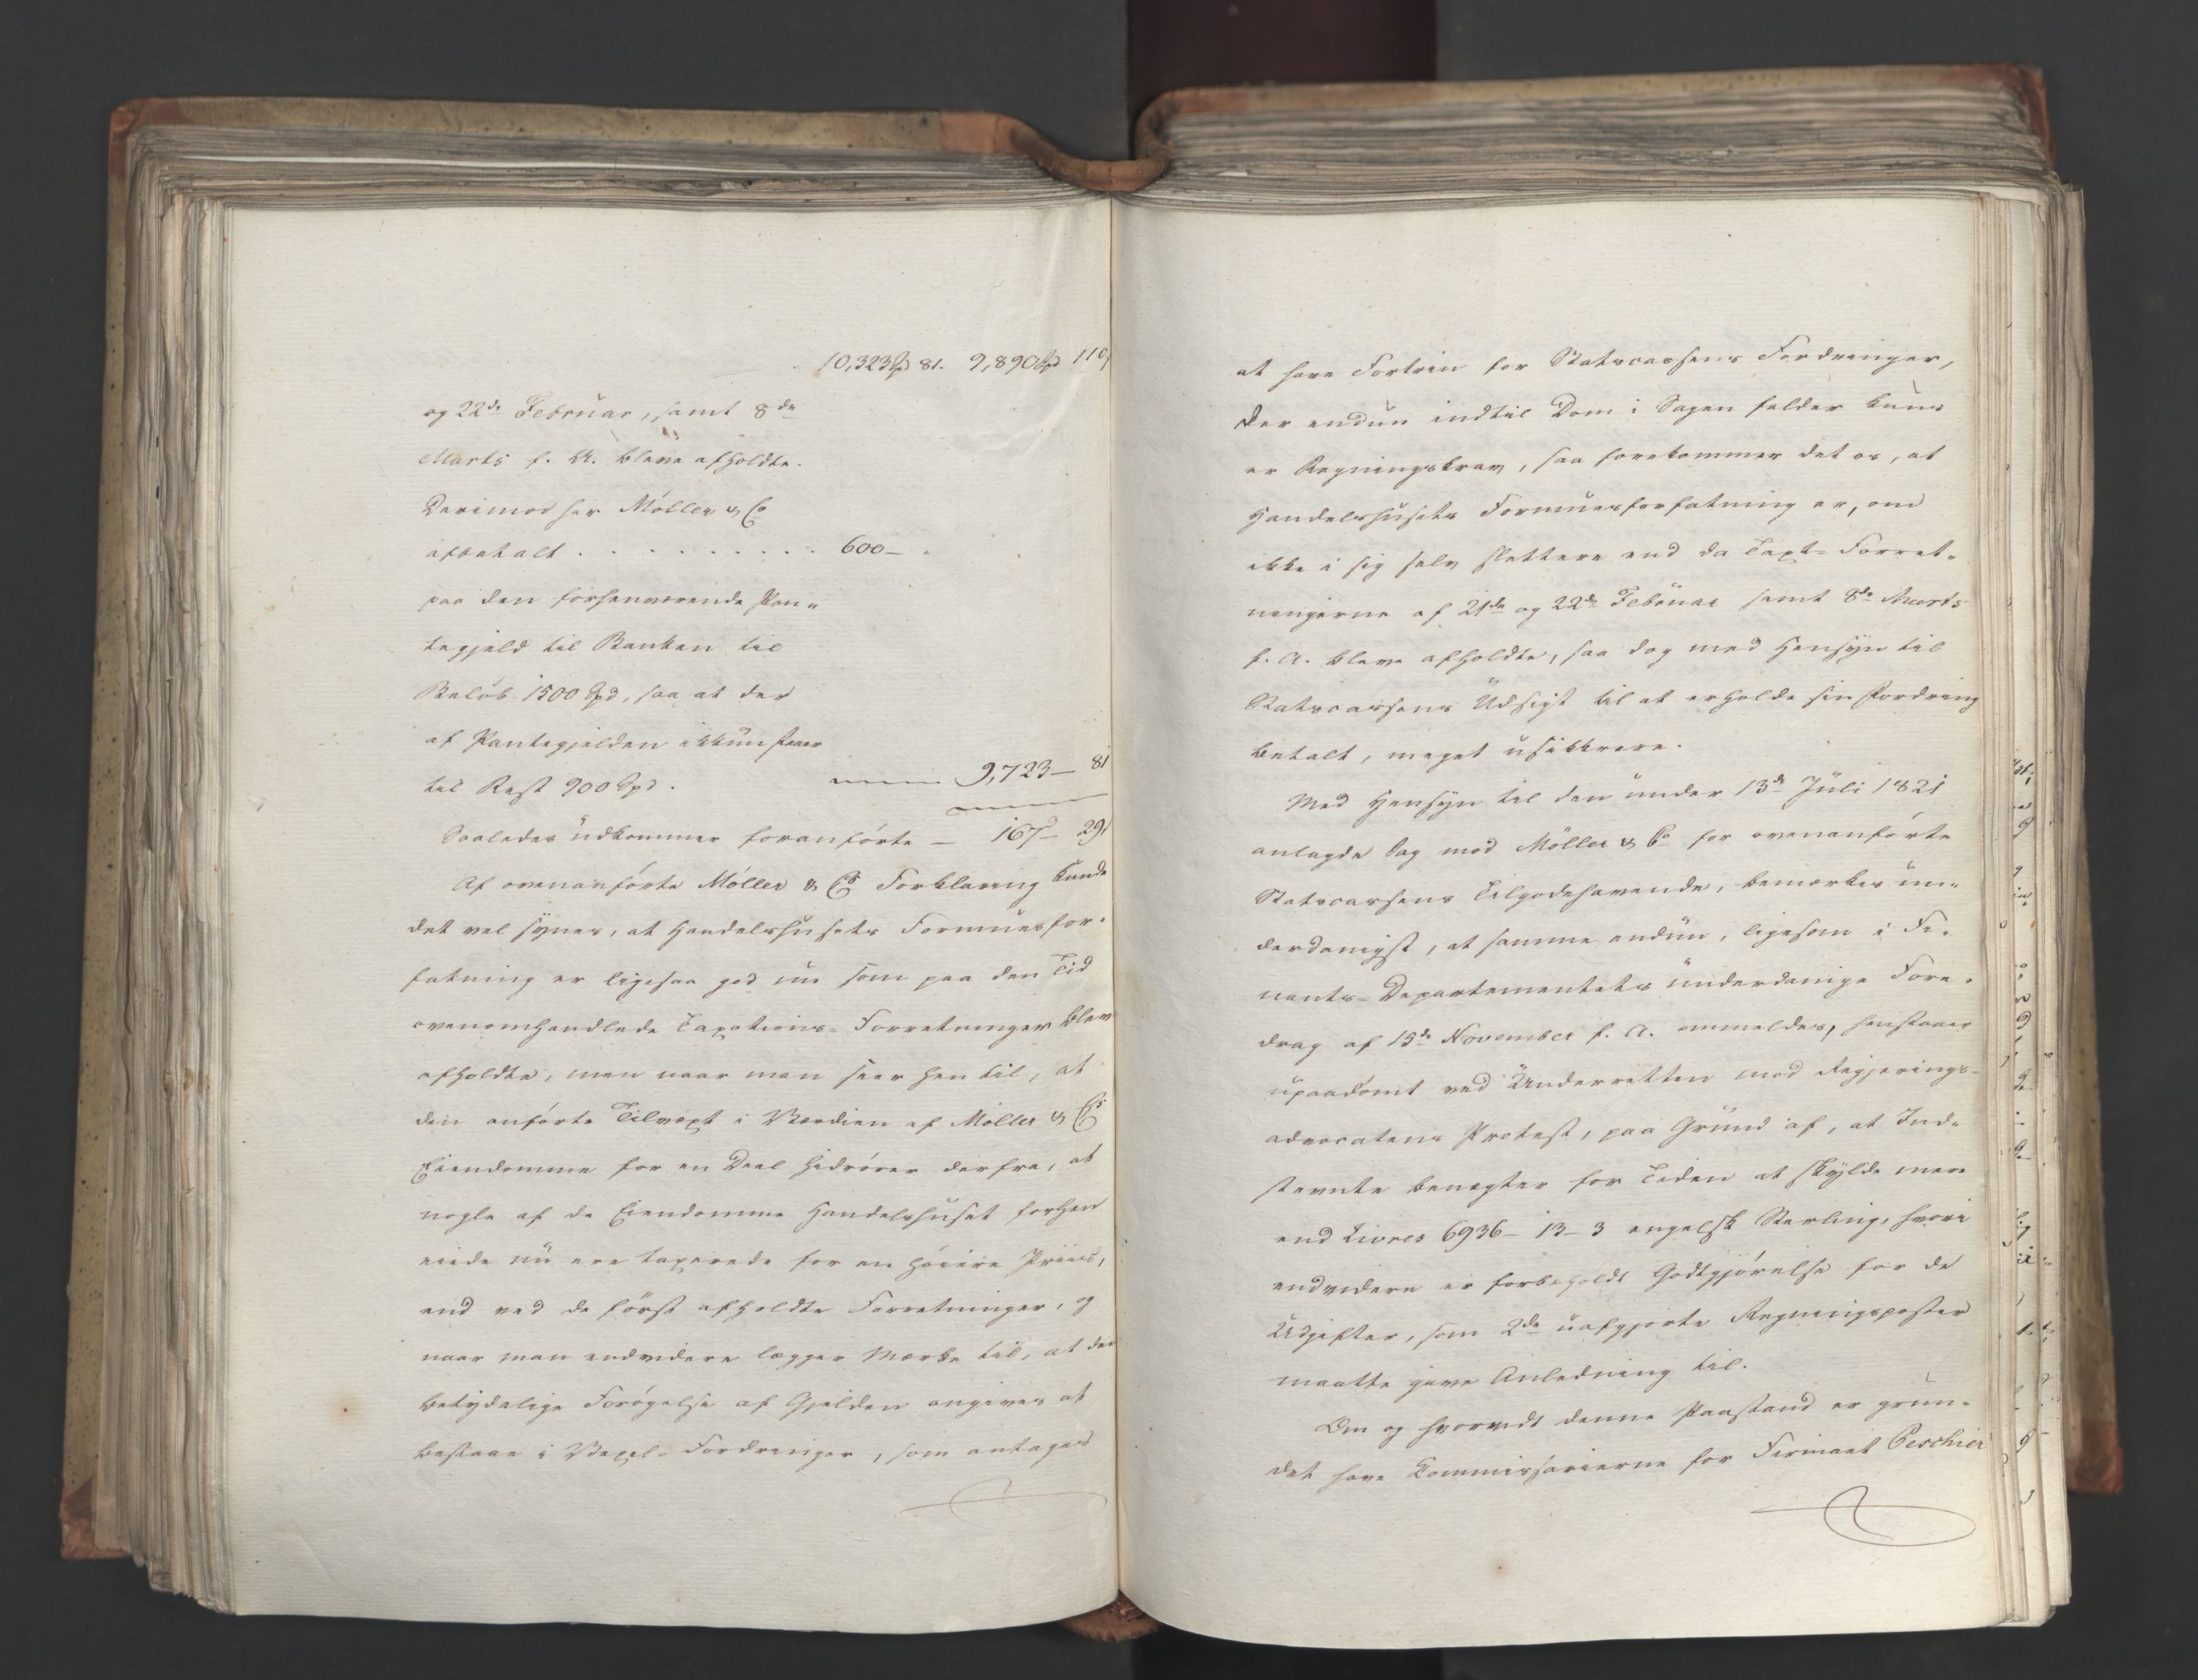 10,323 Spd 81. 9,890 Spd 110
og 22de Februar, samt 8de
Marts f. A. bleve afholdte.
Derimod har Möller & Co
afbetalt . . . . . . . . . . 600 —
paa den forhenværende Pan-
tegjeld til Banken til
Beløb 1500 Spd, saa at der
af Pantegjelden ikkun staaer
til Rest 900 Spd. 9,723 — 81
Saaledes udkommer foranførte — 167 — 29
Af ovenanførte Møller & Cos Forklaring kunde
det vel synes, at Handelshusets Formuesfor-
fatning er ligesaa god nu som paa den Tid
ovenomhandlede Taxations-Forretninger blev
afholdte, men naar man seer hen til, at
den anførte Tilvæxt i Værdien af Møller & Cos
Eiendomme for en Deel hidrører derfra, at
nogle af de Eiendomme Handelshuset forhen
eiede nu ere taxerede for en høiere Priis,
end ved de först afholdte Forretninger, og
naar man endvidere lægger Mærke til, at den
betydelige Forøgelse af Gjelden angives at
bestaae i Vexel-Fordringer, som antages
at have Fortrin for Statscassens Fordringer,
der endnu indtil Dom i Sagen falder kuns
er Regningskrav, saa forekommer det os, at
Handelshusets Formuesforfatning er, om
ikke i sig selv slettere end da Taxt-Forret-
ningerne af 21de og 22de Februar samt 8de Marts
f. A. bleve afholdte, saa dog med Hensyn til
Statscassens Udsigt til at erholde sin Fordring
betalt, meget usikkrere.
Med Hensyn til den under 13de Juli 1821
anlagde Sag mod Möller & Co for ovenanførte
Statscassens Tilgodehavende, bemærkes un-
derdanigst, at samme endnu, ligesom i Fi-
nants-Departementets underdanige Fore-
drag af 15de November f. A. ommeldes, henstaaer
upaadømt ved Underretten mod Regjerings-
advocatens Protest, paa Grund af, at Ind-
stevnte benægter for Tiden at skylde mere
end Livres 6936 — 13 — 3 engelsk Sterling, hvori
endvidere er forbeholdt Godtgjørelse for de
Udgifter, som 2de uafgjorte Regningsposter
maatte give Anledning til.
Om og hvorvidt denne Paastand er grun-
det have Commissarierne for Firmaet Peschier